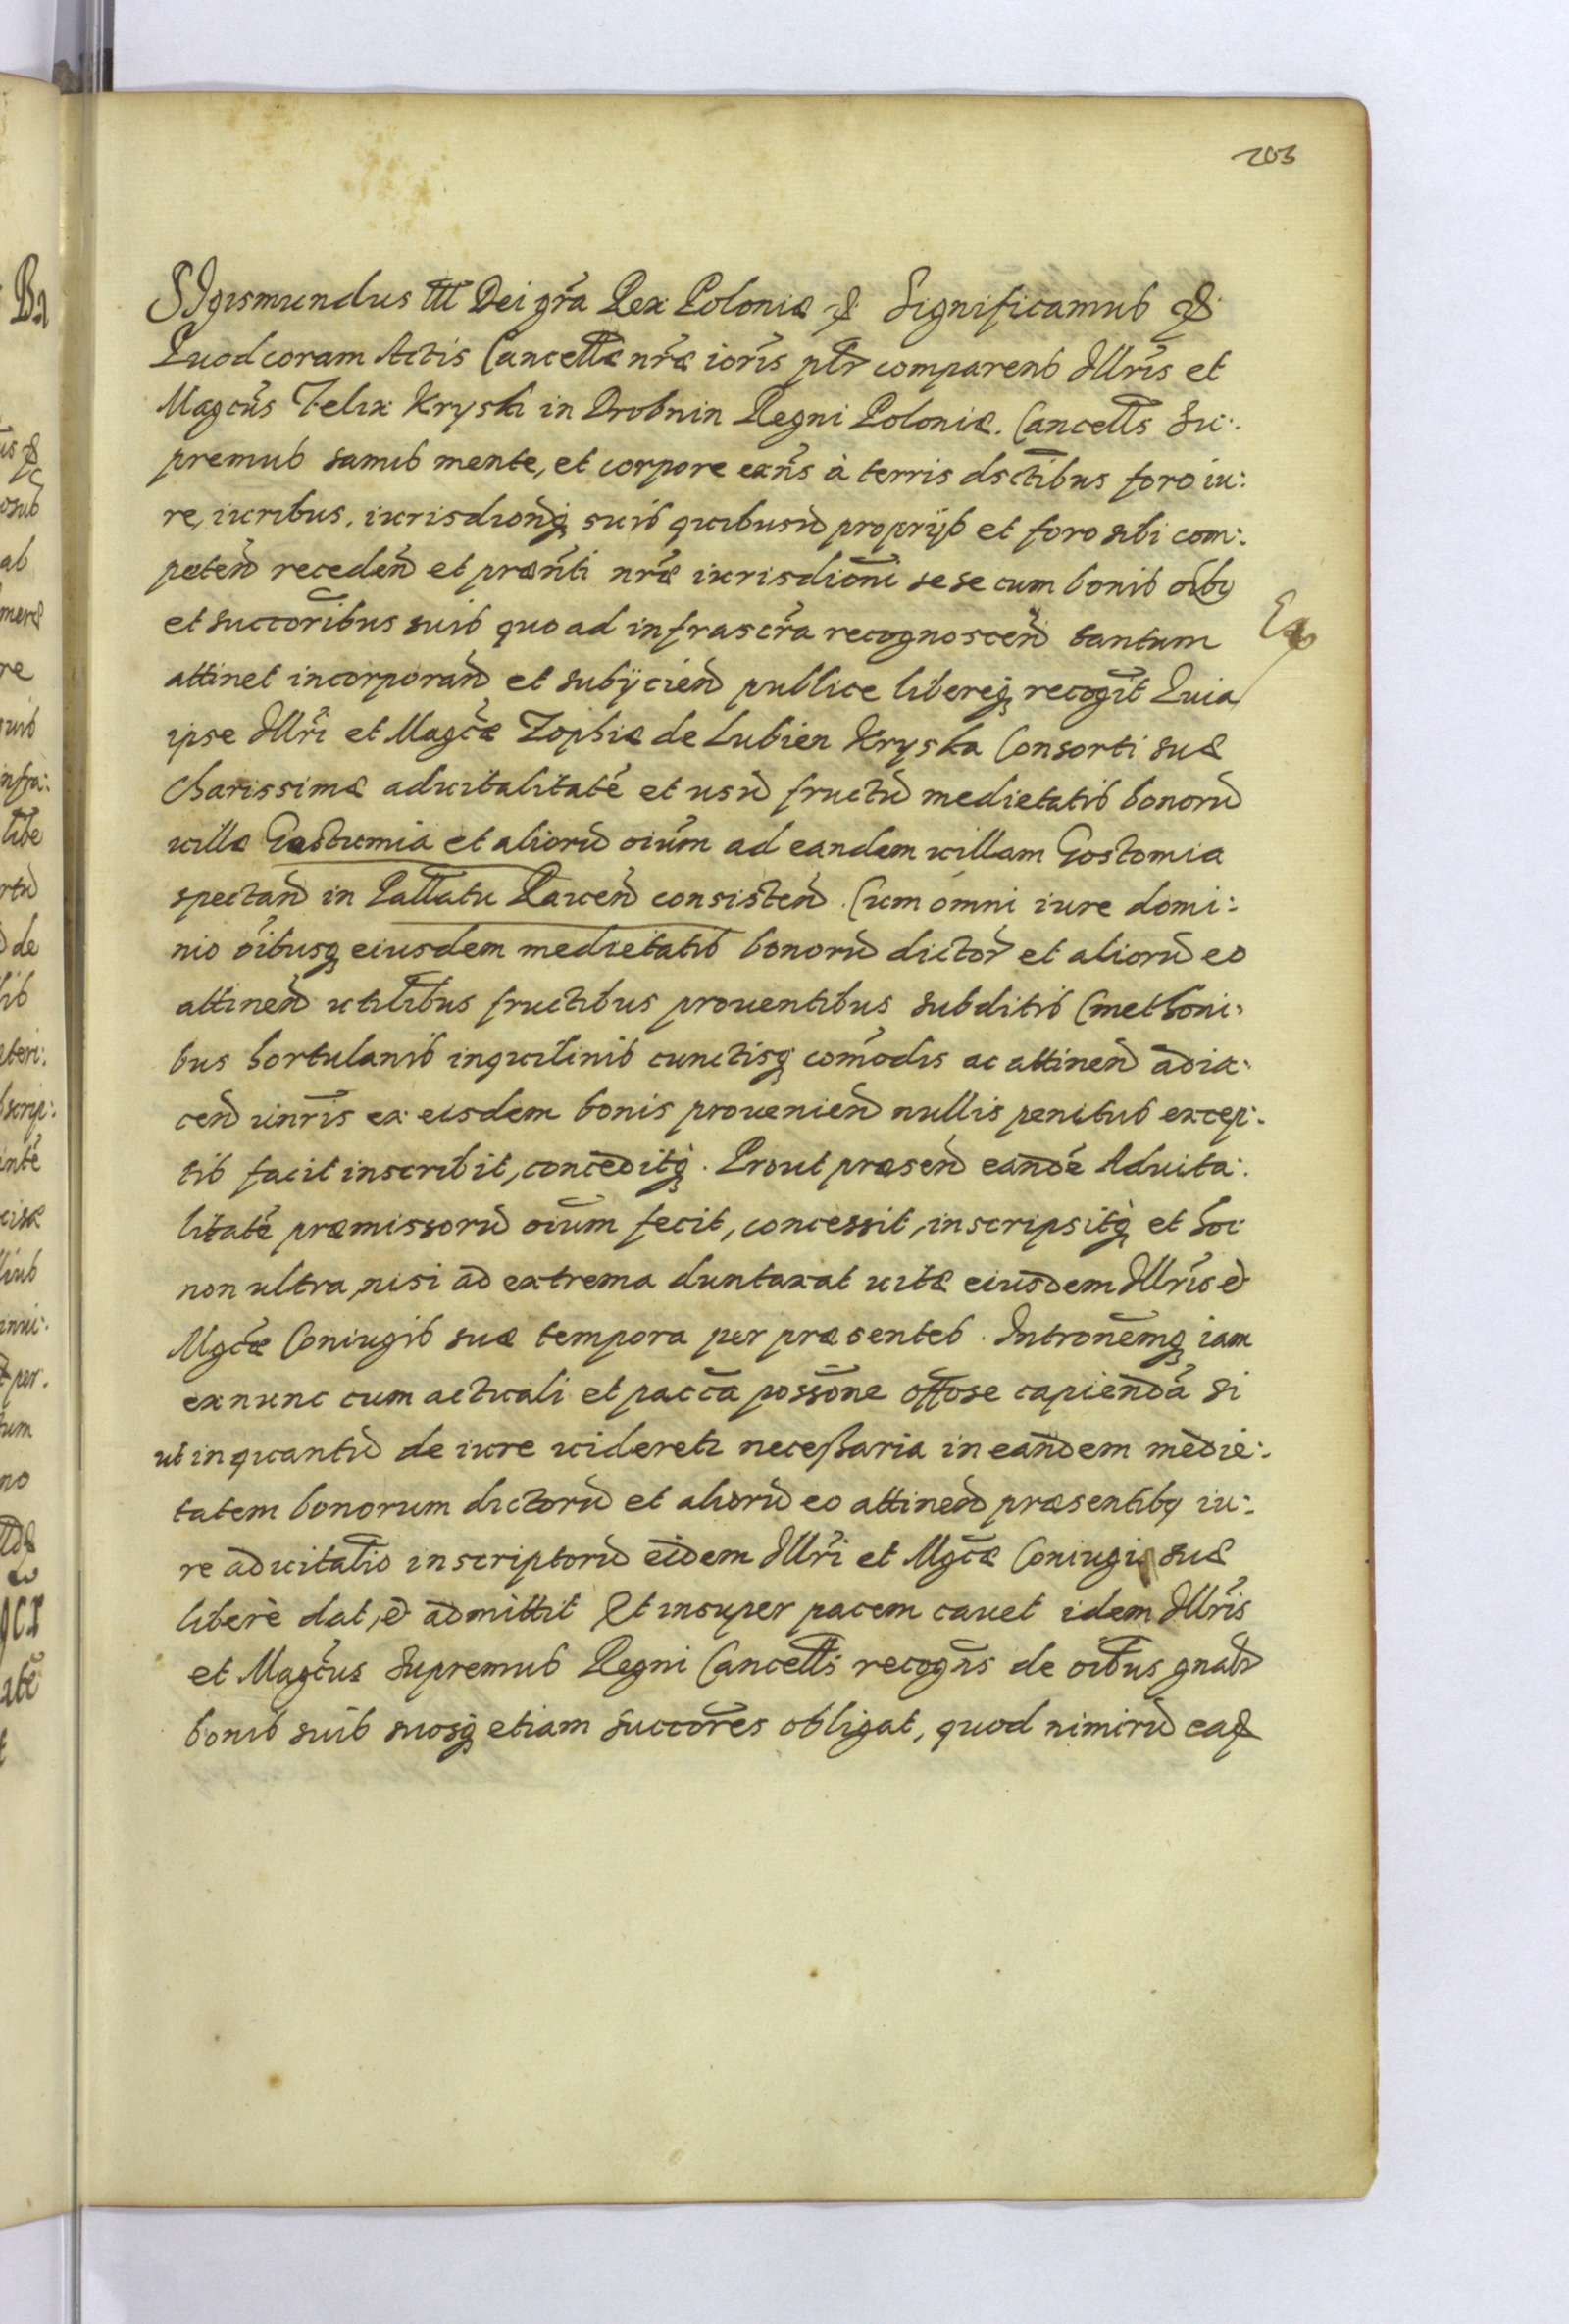 203
SIgismundus III Dei gra Rex Poloniæ &. Significamus &.
Quod coram Actis Cancellæ nræ ioris plr comparens Illris et
Magcus Felix Kryski in Drobnin Regni Poloniæ. Cancells Su:
premus sanus mente, et corpore exñs à terris dsctibus foro iu:
re, iuribus, iurisdionq suis quibusuis proprijs et foro sibi com:
peteñ recedeñ et præñti nræ iurisdioni sese cum bonis oibus
et succoribus suis quo ad infrascra recognosceñ tantum
attinet incorporañ et subijcieñ publice libereq recogit Quia
ipse Illri et Magcæ Zophiæ de Lubien Kryska Consorti suæ
charissimæ aduitalitaté et usũ fructũ medietatis bonorũ
uillæ Gostumia et aliorũ oium ad eandem uillam Gostomia
spectañ in Pallatu Rauceñ consisteñ. Cum omni iure domi:
nio oibusq eiusdem medietatis bonorũ dictor et aliorũ eo
attineñ utilibus fructibus prouentibus subditis Cmethoni:
bus hortulanis inquilinis cunctisq comodis ac attineñ adia:
ceñ uinris ex eisdem bonis prouenieñ nullis penitus excep:
tis facit inscribit, conceditq. Prout præseñ eandé Aduita:
litaté præmissorũ oium fecit, concessit, inscripsitq et hoc
non ultra, nisi ad extrema duntaxat uitæ eiusdem Illris &
Mgcæ Coniugis suæ tempora per præsentes. Intronemq iam
ex nunc cum actuali et pacca possone offose capiendá si
ut in quantũ de iure uideretr necessaria in eandem medie:
tatem bonorum dictorũ et aliorũ eo attineñ præsentibus iu:
re aduitalio inscriptorũ eidem Illri et Mgcæ Coniugi suæ
liberè dat, & admittit Et insuper pacem cauet idem Illris
et Magcus Supremus Regni Cancells recogns de oibus gnalr
bonis suis suosq etiam succores obligat, quod nimirũ ea &